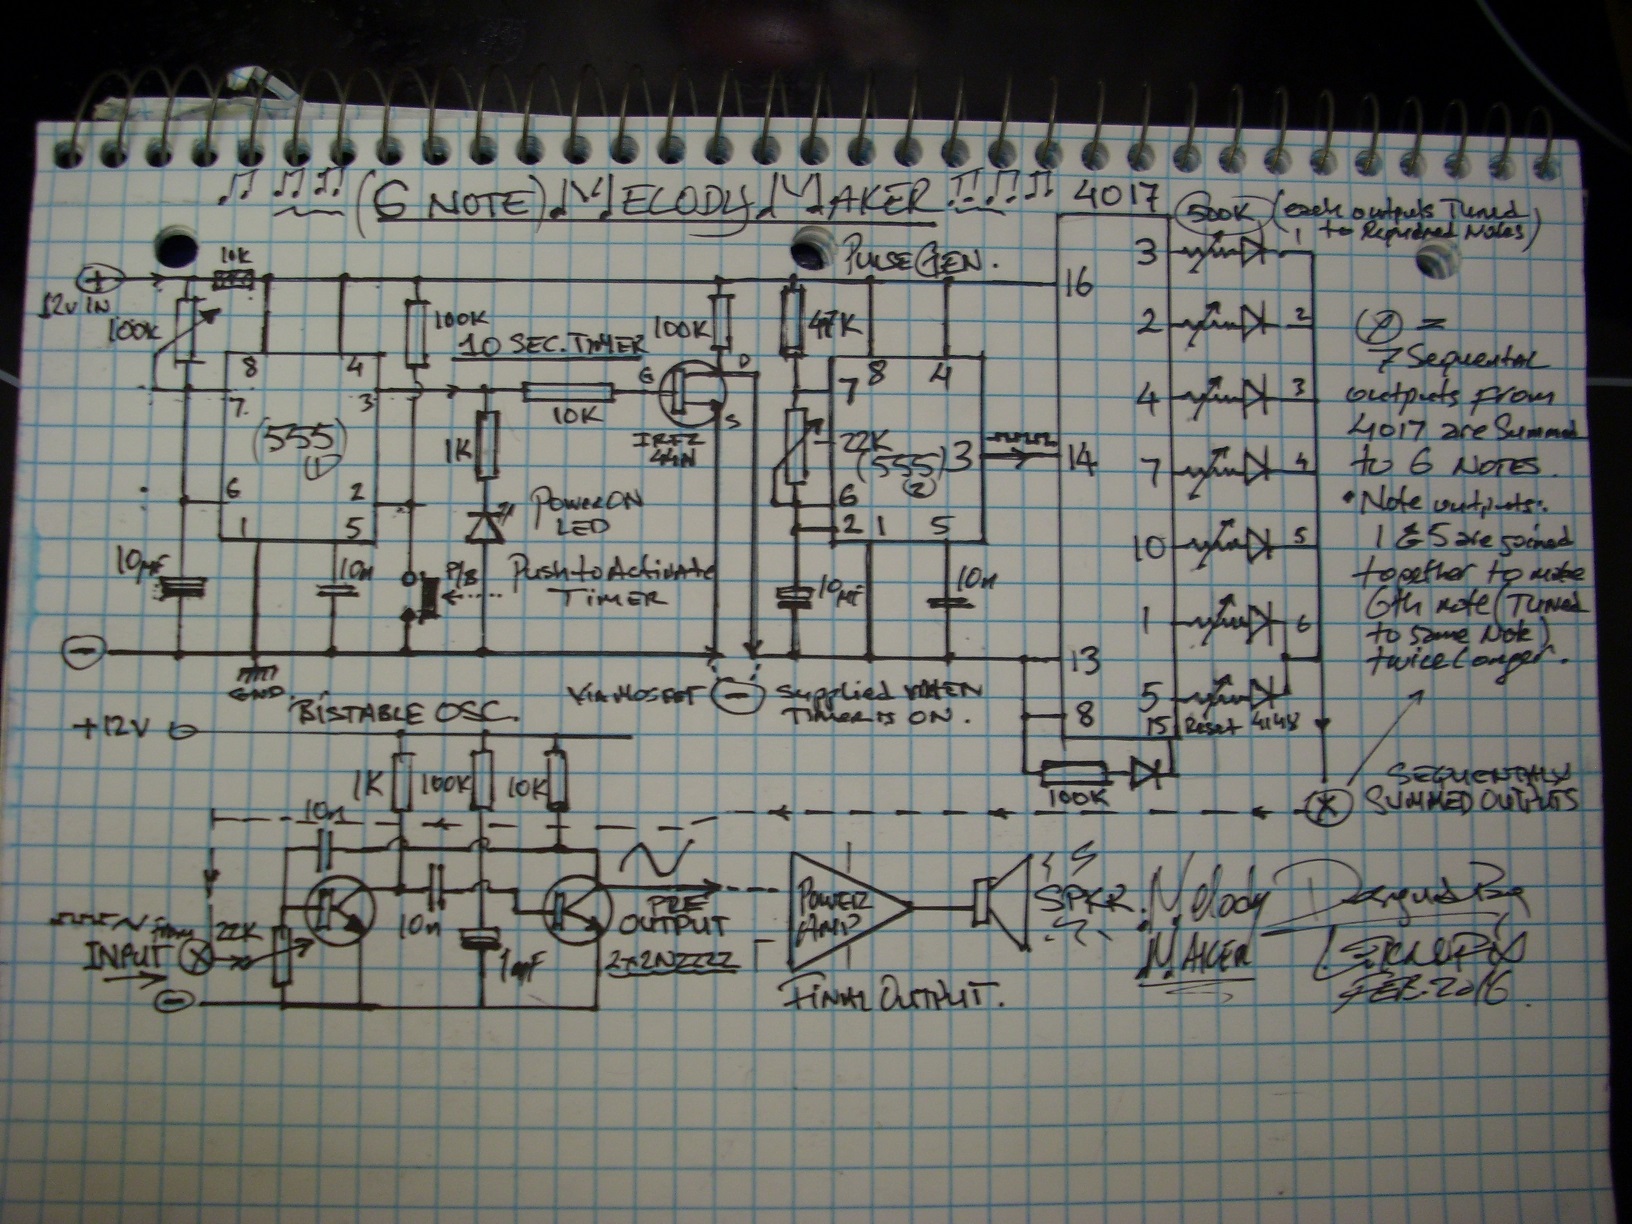 (6 NOTE) MELODY MAKER
4017
500K (each outputs Tuned
to Required Notes)
PULSE GEN.
+
12V IN
10K
100K
100K
10 SEC. TIMER
100K
47K
8
4
7
3
(555)
1
6
2
1
5
10K
1K
G
D
S
IRFZ
44N
8
4
7
22K
(555)
2
3
6
2
1
5
16
14
13
8
15
3
2
4
7
10
1
5
1
2
3
4
5
6
Reset
4148
100K
10µF
10n
P/B
POWER ON
LED
Push to Activate
TIMER
10µF
10n
-
GND.
VIA MOSFET
-
Supplied WHEN
TIMER IS ON.
X =
7 Sequental
outputs from
4017 are Summed
to 6 NOTES.
• Note outputs:
1 & 5 are joined
together to make
6th note (Tuned
to same Note)
twice Longer.
SEQUENTIALY
SUMMED OUTPUTS
X
BISTABLE OSC.
+12V
1K
100K
10K
10n
10n
from
INPUT
X
22K
1µF
-
PRE
OUTPUT
2x2N2222
POWER
AMP
SPKR.
FINAL OUTPUT.
Melody
MAKER
FEB. 2016.